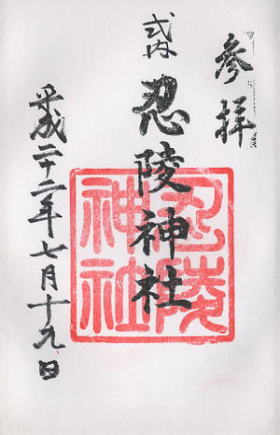 参拝
式内
忍陵神社
平成二十二年七月十九日
忍陵
神社